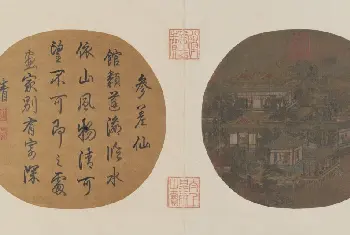 參差仙
館類蓬瀛臨水
依山風物清可
望不可即之處
畫家別有寄深
情